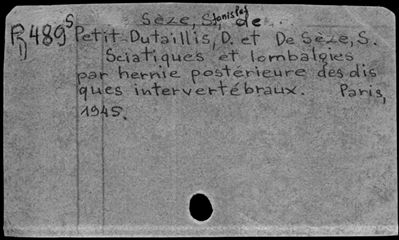 Sèze, Stanislas de
R489 S Petit-Dutaillis, D. et De Sèze, S.
Sciatiques et lombalgies
par hernie postérieure des dis
ques intervertébraux. Paris,
1945.